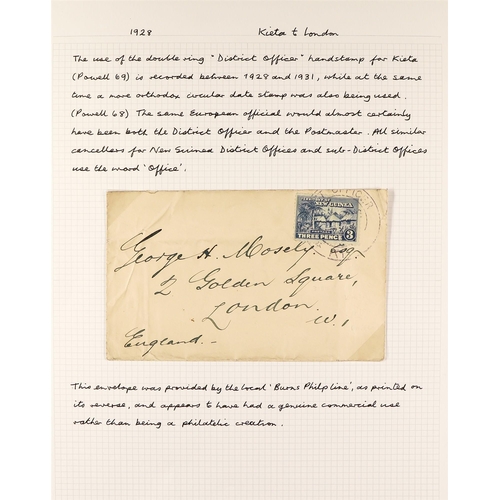 1928 Kieta to London
The use of the double ring "District Officer" handstamp for Kieta
(Powell 69) is recorded between 1928 and 1931, while at the same
time a more orthodox circular date stamp was also being used.
(Powell 68) The same European official would almost certainly
have been both the District Officer and the Postmaster. All similar
cancellers for New Guinea District Offices and sub-District Offices
use the word 'Office'.
NEW GUINEA
THREE PENCE 3
George H. Mosely. Esq.
2 Golden Square,
London.
W.1
England.
This envelope was provided by the local 'Burns Philp line', as printed on
its reverse, and appears to have had a genuine commercial use
rather than being a philatelic creation.